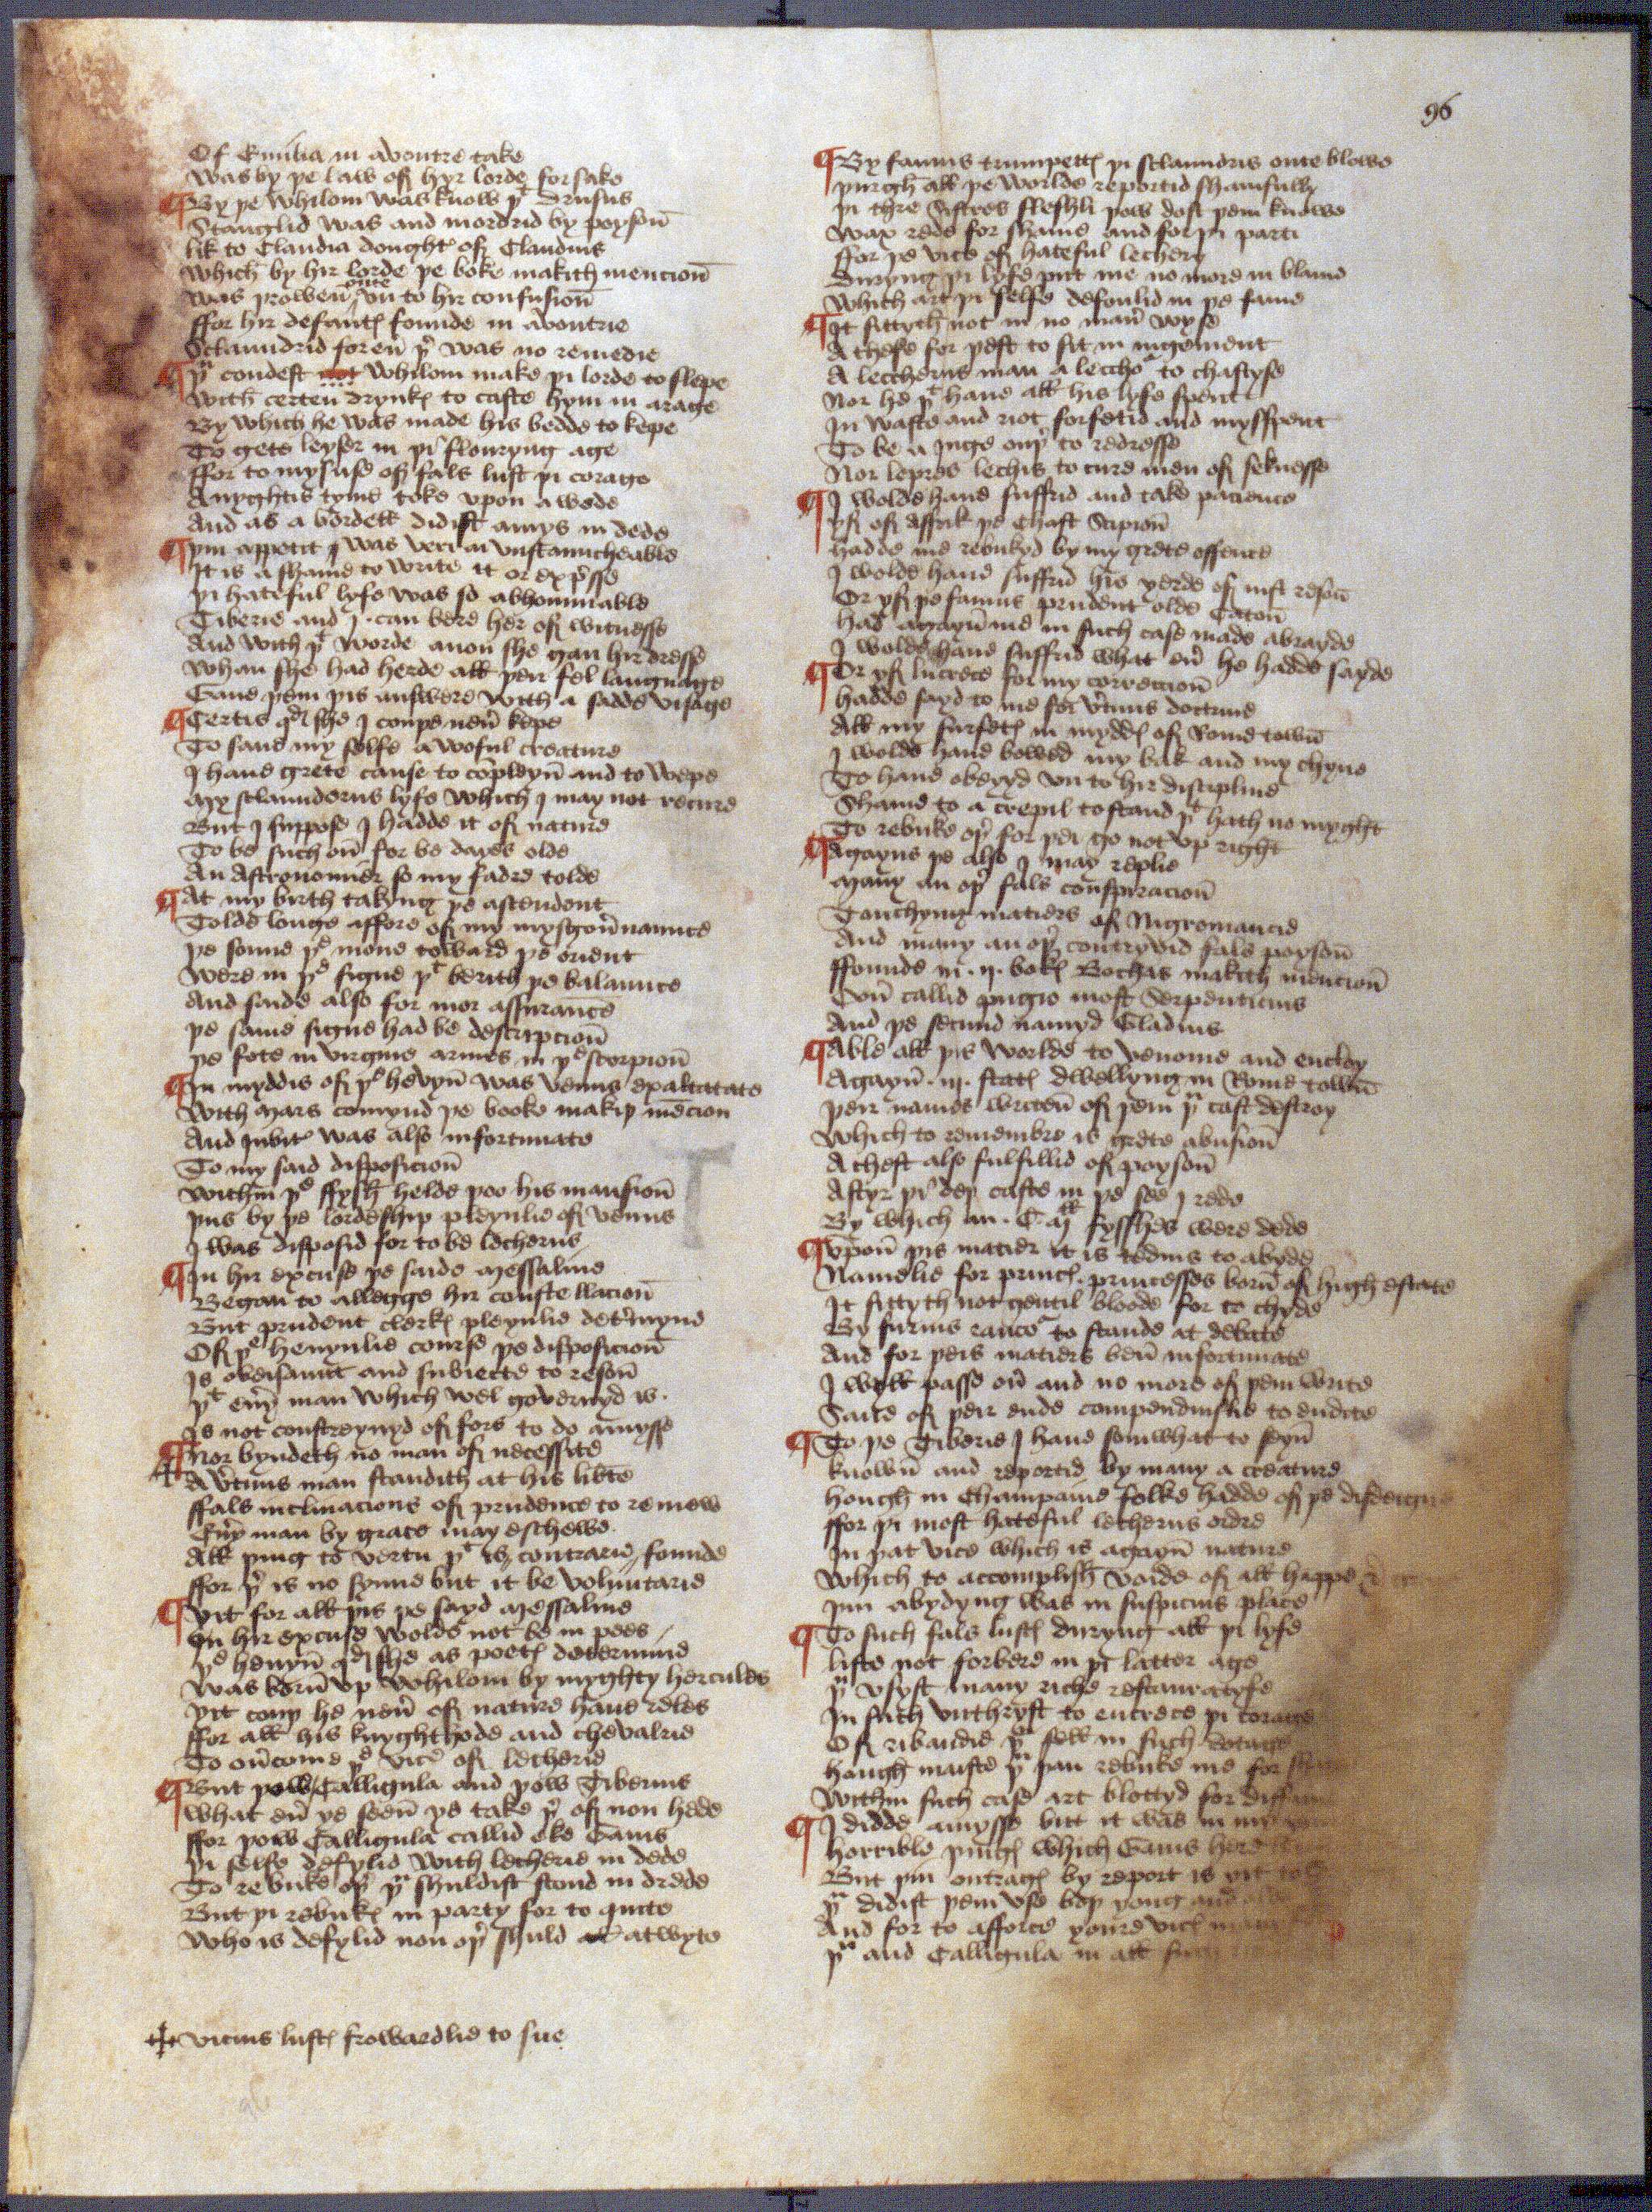 96
Of Emilia in avoutre take
Was by þe law of hyr lorde forsake
¶ By þe whilom was know þᵗ Drusus
Stanglid was and mordrid by poysoū
lik to Claudia dought' of Claudius
Which by hir lorde þe boke makith mencioū
Was proweū oute vn to hir confusioū
ffor hir defaut' founde in avoutrie
Sclaundrid foreū þ' was no remedie
¶ þᵘ coudest not whilom make þi lorde to slepe
With certeū drynk' to caste hym in arage
By which he was made his bedde to kepe
To gete leyser in þi flouryng age
ffor to mysuse of fals lust þi corage
Anyghtis tyme toke vpon a wede
And as a bordell didist amys in dede
¶ þin appetit was verrai vnstauncheable
It is a shame to write it or exp'sse
þi hateful lyfe was so abhominable
Tiberie and I can bere her of witnesse
And with þᵗ worde anon she gan hir dresse
Whan she had herde all þeir fel langnage
Gaue þem þis answere with a sadde visage
¶ Certis qd she I coupe neū kepe
To saue my selfe a woful creature
I haue grete cause to cōpleyn̄ and to wepe
My sclaunderus lyfe which I may not recure
But I suppose I hadde it of nature
To be such on̄ for be dayes olde
An Astronomier so my fadre tolde
¶ At my birth takyng þe ascendent
Tolde longe affore of my mysgou'naunce
þe sonne þe mone toward þe orient
Were in þe signe þᵗ berith þe balaunce
And saide also for mor assurance
þe same signe had be descripcioū
þe fote in virgine armes in þe scorpioū
¶ In myddis of þe hevyn̄ was venus exaltatate
With Mars comynd þe booke makiþ mēcion
And Jubit' was also infortunate
To my said disposicioū
Within þe ffysh helde poo his mansioū
þus by þe lordeship pleynlie of venus
I was disposid for to be lecherus
¶ In hir excuse þe saide Messaline
Began to allegge hir constellacioū
But prudent clerk' pleynlie det'myne
Of þe heuynlie course þe disposicioū
Is obeisaunt and subiecte to resoū
þᵗ eu'y man which wel governyd is
Is not constreynyd of fors to do amysse
¶ Nor byndeth no man of necessite
A v'tuus man standith at his lib'te
ffals inclinacions of prudence to remew
Eu'y man by grace may eschewe
All þing to vertu þᵗ is contrarie founde
ffor þ' is no synne but it be voluntarie
¶ Yit for all þis þe sayd Messaline
In hir excuse wolde not be in pees
þe heuyn̄ qd she as poet' determine
Was born̄ vp whilom by myghty hercules
Yit couþ he neū of nature haue reles
ffor all his knyghthode and chevalrie
To ou'come þe vice of lecherie
¶ But þow Calligula and þow Tiberius
What eū ye seen̄ ye take þ' of non hede
ffor þow Calligula callid eke Gaius
þi selfe defylid with lecherie in dede
To rebuke oþ' þᵘ shuldist stond in drede
But þi rebuk' in party for to quite
Who is defylid non oþ' shuld atwyte
✢ Vicius lust' frowardlie to sue
¶ By famus trumpett' þi sclaundris oute blowe
þurgh all þe worlde reportid shamfully
þi thre Sistres fleshli þow dost þem knowe
Wax rede for shame and for þi parti
ffor þe vice of hateful lechery
Duryng þi lyfe put me no more in blame
Which art þi selfe defoulid in þe fame
¶ It sittyth not in no man' wyse
A thefe for þeft to sit in iugement
A leccherus man a lecchoʳ to chastyse
Nor he þᵗ haue all his lyfe spent
In waste and riot forfetid and myspent
To be a Juge ouþ' to redresse
Nor lepres lechis to cure men of seknesse
¶ I wolde haue suffrid and take pacience
yf of Affrik þe Chast Scipioū
hadde me rebukyd by my grete offence
I wolde haue suffrid his yerde of iust resoū
Or yf þe famus prudent olde Catoū
had agayn̄ me in such case made abrayde
I wolde haue suffrid what eū he hadde sayde
¶ Or yf lucrece for my correccioū
hadde sayd to me for v'tuus doctrine
All my surfet' in mydd' of Rome towū
I wolde haue bowed my bak and my chyne
To haue obeyyd vn to hir discipline
Shame to a crepil to stand þᵗ hath no myght
To rebuke oþ' for þei go not vp right
¶ Agayns þe also I may replie
Many an oþ' fals conspiracioū
Touchyng matiers of Nigromancie
And many an oþ' contryvid fals poysoū
ffounde in .ij. bok' Bochas makith mencioū
Ooū callid pugio most Serpenticius
And þe secund namyd Gladius
¶ Able all þis worlde to venome and encloy
Agayn̄ .iij. stat' dwellyng in Rome towū
þeir names writen̄ of þem þᵘ cast destroy
Which to remembre is grete abusioū
A chest also fulfillid of poysoū
Aftyr þi deþ caste in þe see I rede
By which an .C. Mˡˡ fysshes were dede
¶ Vpon̄ þis matier it is tedius to abyde
Namelie for princ' princesses born̄ of high estate
It sittyth not gentil bloode for to chyde
By furius rancoʳ to stande at debate
And for þeis matiers ben̄ infortunate
I wyll passe ou' and no more of þem write
Saite of þeir ende compendiuslie to endite
¶ To þe Tiberie I haue somwhat to seyn̄
knowū and reportid by many a creature
hough in Champaine folke hadde of þe disdeigne
ffor þi most hateful lecherus ordre
In þat vice which is agayn̄ nature
Which to accomplish voide of all happe &
þin abydyng was in suspicius place
¶ To such fals lust' duryng all þi lyfe
liste not forbere in þi latter age
þᵘ vsyst many riche restauratyfe
In such vnthryft to encrece þi corage
Of ribaudie þᵘ fell in such dotage
haugh maiste þᵘ þan rebuke me for
Within such case art blottyd for diffame
¶ I didde amysse but it was in my
horrible þing' which Gaius herd
But þin outrag' by report is yit told
þᵘ didist þem vse boþ yong and
And for to afforce youre vic'
þᵘ and Calligula in all such